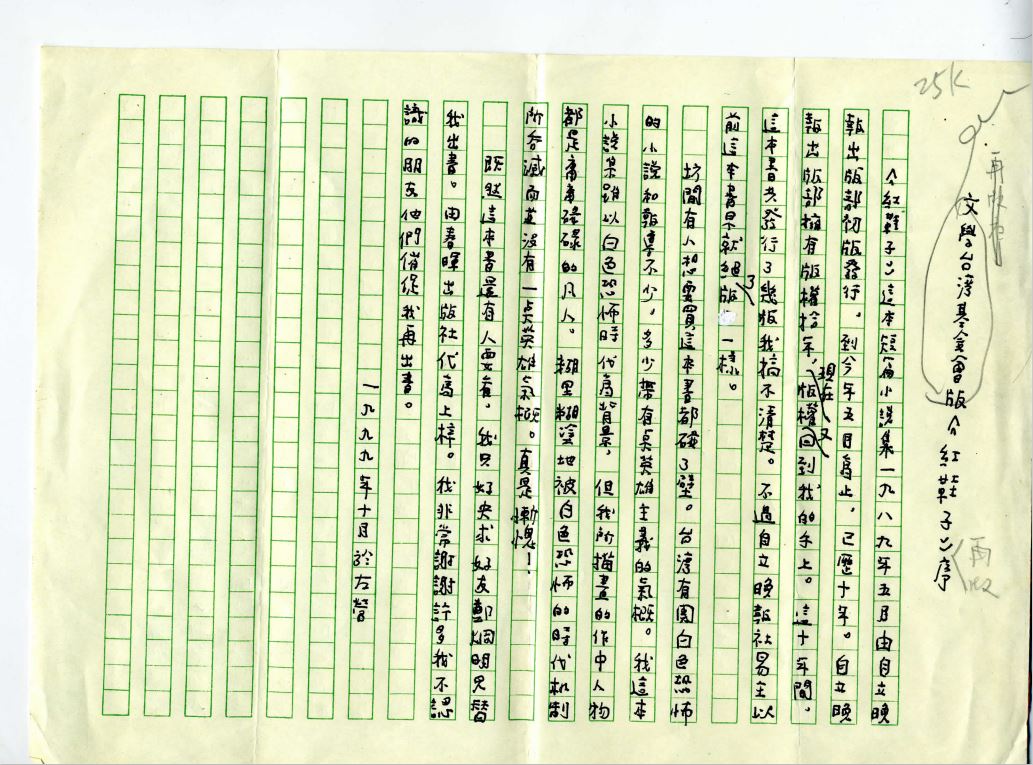 25K
文學台灣基金會版《紅鞋子》序
《紅鞋子》這本短篇小說集一九八九年五月由自立晚
報出版部初版發行。到今年五月為止,已歷十年。自立晚
報出版部擁有版權拾年,現在版權又回到我的手上。這十年間,
這本書共發行了幾版我搞不清楚。不過自立晚報社易主以
前這本書早就絕版了一樣。
坊間有人想要買這本書都碰了壁。台灣有關白色恐怖
的小說和報導不少,多少帶有某英雄主義的氣概。我這本
小說集雖以白色恐怖時代為背景,但我所描畫的作中人物
都是庸庸碌碌的凡人。糊里糊塗地被白色恐怖的時代机制
所吞滅而並沒有一點英雄氣概。真是慚愧!
既然這本書還有人要看,我只好央求好友鄭烱明兄替
我出書。由春暉出版社代為上梓。我非常謝謝許多我不認
識的朋友他們催促我再出書。
一九九九年十月於左營